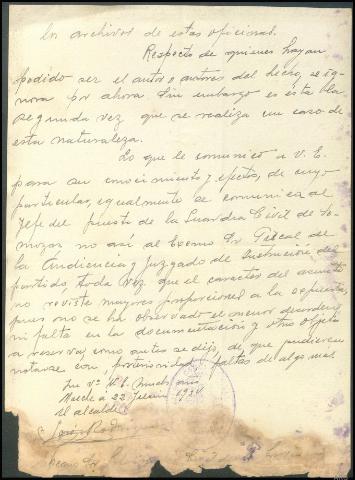 los archivos de estas oficinas.
Respecto de quienes hayan
podido ser el autor o autores del hecho, se ig-
nora por ahora. Sin embargo es esta la
segunda vez que se realiza un caso de
esta naturaleza.
Lo que le comunico a V. E.
para su conocimiento y efectos, de cuyo
particular, igualmente se comunica al
Jefe del puesto de la Guardia Civil de
no así al Excmo Sr Fiscal de
la Audiencia y Juzgado de Instrucción del
partido, toda vez que el caracter del asunto
no reviste mayores proporciones a la expuesta,
pues no se ha observado el menor desorden
ni falta en la documentación y otro objeto
a reserva, como antes se dijo, de que pudieren
notarse con posterioridad faltas de algo mas
V. E. muchos años
a 22 193
El alcalde